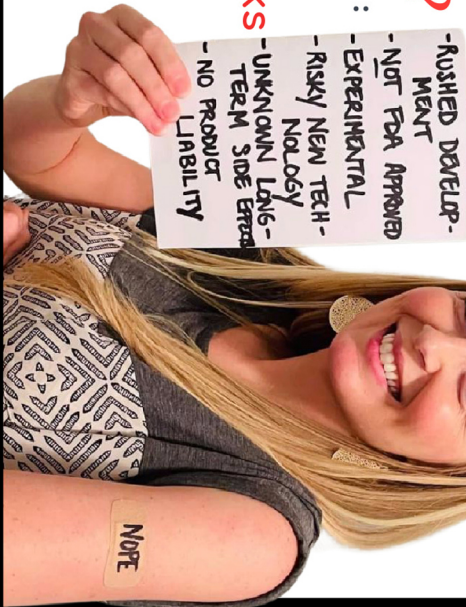 KS
:
-RUSHED DEVELOP-
MENT
- NOT FDA APPROVED
- EXPERIMENTAL
- RISKY NEW TECH-
NOLOGY
-UNKNOWN LONG-
TERM SIDE EFFECTS
- NO PRODUCT
LIABILITY
NOPE